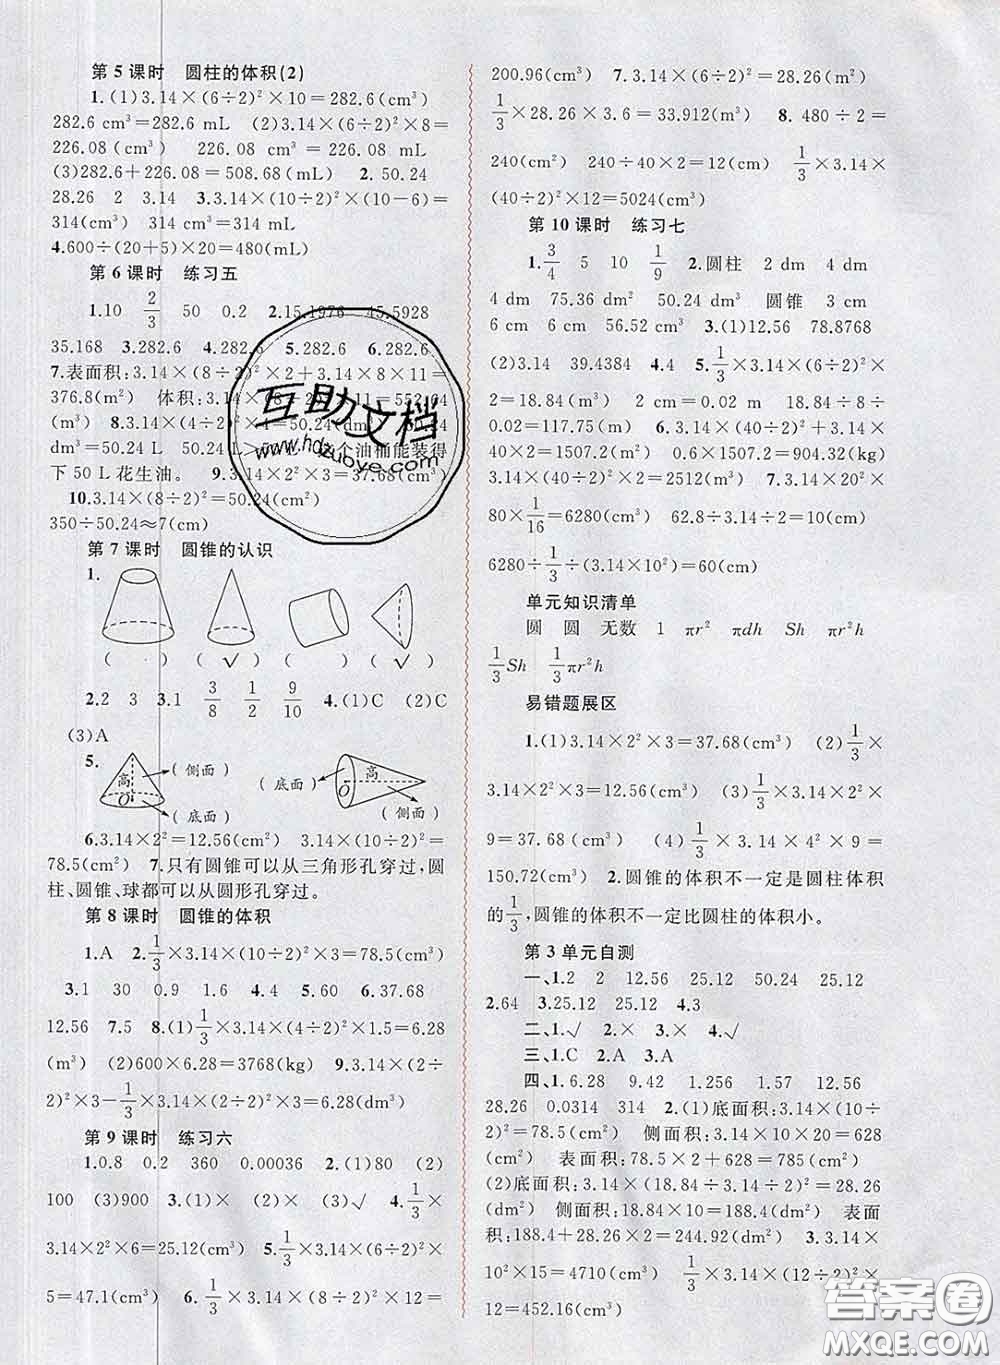 第 5 课时　圆柱的体积(2)
1.(1)3.14×(6÷2)²×10＝282.6(cm³)
282.6 cm³＝282.6 mL　(2)3.14×(6÷2)²×8＝
226.08 (cm³)　226.08 cm³＝226.08 (mL)
(3)282.6＋226.08＝508.68(mL)　2. 50.24
28.26　2　3.14　3.3.14×(10÷2)²×(10－6)＝
314(cm³)　314 cm³＝314 mL
4.600÷(20＋5)×20＝480(mL)
第 6 课时　练习五
1.10　2/3　50　0.2　2.15.1976　45.5928
35.168　3.282.6　4.282.6　5.282.6　6.282.6
7.表面积:3.14×(8÷2)²×2＋3.14×8×11＝
376.8(m²)　体积:3.14×(8÷2)²×11＝552.64
(m³)　8.3.14× ×4＝50.24(dm³)　50.24
dm³＝50.24 L　50.24 L＞50 L 油桶能装得
下 50 L 花生油。　9.3.14×2²×3＝37.68(cm³)
10.3.14×(8÷2)²＝50.24(cm²)
350÷50.24≈7(cm)
第 7 课时　圆锥的认识
1.
(　)　(√)　(　)　(√)
2.2　3　3.1　3/8　1/2　9/10　4.(1)C　(2)C
(3)A
5.　高　O　(侧面)　(底面)　(底面)　高　O　(侧面)
6.3.14×2²＝12.56(cm²)　3.14×(10÷2)²＝
78.5(cm²)　7.只有圆锥可以从三角形孔穿过,圆
柱、圆锥、球都可以从圆形孔穿过。
第 8 课时　圆锥的体积
1.A　2.1/3×3.14×(10÷2)²×3＝78.5(cm³)
3.1　30　0.9　1.6　4.4　5.60　6.37.68
12.56　7.5　8.(1)1/3×3.14×(4÷2)²×1.5＝6.28
(m³)　(2)600×6.28＝3768(kg)　9.3.14×(2÷
2)²×3－1/3×3.14×(2÷2)²×3＝6.28(dm³)
第 9 课时　练习六
1.0.8　0.2　360　0.00036　2.(1)80　(2)
100　(3)900　3.(1)×　(2)×　(3)√　4.1/3×
3.14×2²×6＝25.12(cm³)　5.1/3×3.14×(6÷2)²×
5＝47.1(cm³)　6.1/3×3.14×(8÷2)²×12＝
200.96(cm³)　7.3.14×(6÷2)²＝28.26(m²)
1/3×28.26×3.6＝33.912(m³)　8. 480÷2＝
240(cm²)　240÷40×2＝12(cm)　1/3×3.14×
(40÷2)²×12＝5024(cm³)
第 10 课时　练习七
1.3/4　5　10　1/9　2.圆柱　2 dm　4 dm
4 dm　75.36 dm²　50.24 dm³　圆锥　3 cm
6 cm　6 cm　56.52 cm³　3.(1)12.56　78.8768
(2)3.14　39.4384　4.4　5.1/3×3.14×(6÷2)²×
2＝18.84(m³)　2 cm＝0.02 m　18.84÷8÷
0.02＝117.75(m)　6.1/3×3.14×(12÷2)²×
40＝1507.2(m³)　0.6×1507.2＝904.32(kg)
3.14×(40÷2)²×2＝2512(cm³)　7.3.14×20²×
80×1/16＝6280(cm³)　62.8÷3.14÷2＝10(cm)
6280÷1/3÷(3.14×10²)＝60(cm)
单元知识清单
圆　圆　无数　1　πr²　πdh　Sh　πr²h
1/3Sh　1/3πr²h
易错题展区
1.(1)3.14×2²×3＝37.68(cm³)　(2)1/3×
3.14×2²×3＝12.56(cm³)　(3)1/3×3.14×2²×
9＝37.68(cm³)　(4)1/3×3.14×4²×9＝
150.72(cm³)　2.圆锥的体积不一定是圆柱体积
的1/3,圆锥的体积不一定比圆柱的体积小。
第 3 单元自测
一、1.2　2　12.56　25.12　50.24　25.12
2.64　3.25.12　25.12　4.3
二、1.√　2.×　3.×　4.√
三、1.C　2.A　3.A
四、1.6.28　9.42　1.256　1.57　12.56
28.26　0.0314　314　2.(1)底面积:3.14×(10÷
2)²＝78.5(cm²)　侧面积:3.14×10×20＝628
(cm²)　表面积:78.5×2＋628＝785(cm²)
(2)底面积:3.14×(18.84÷3.14÷2)²＝28.26
(dm²)　侧面积:18.84×10＝188.4(dm²)　表面
积:188.4＋28.26×2＝244.92(dm²)　3.3.14×
10²×15＝4710(cm³)　1/3×3.14×(12÷2)²×
12＝452.16(cm³)
互助文档
www.hdzuoye.com
答案圈
MXQE.COM